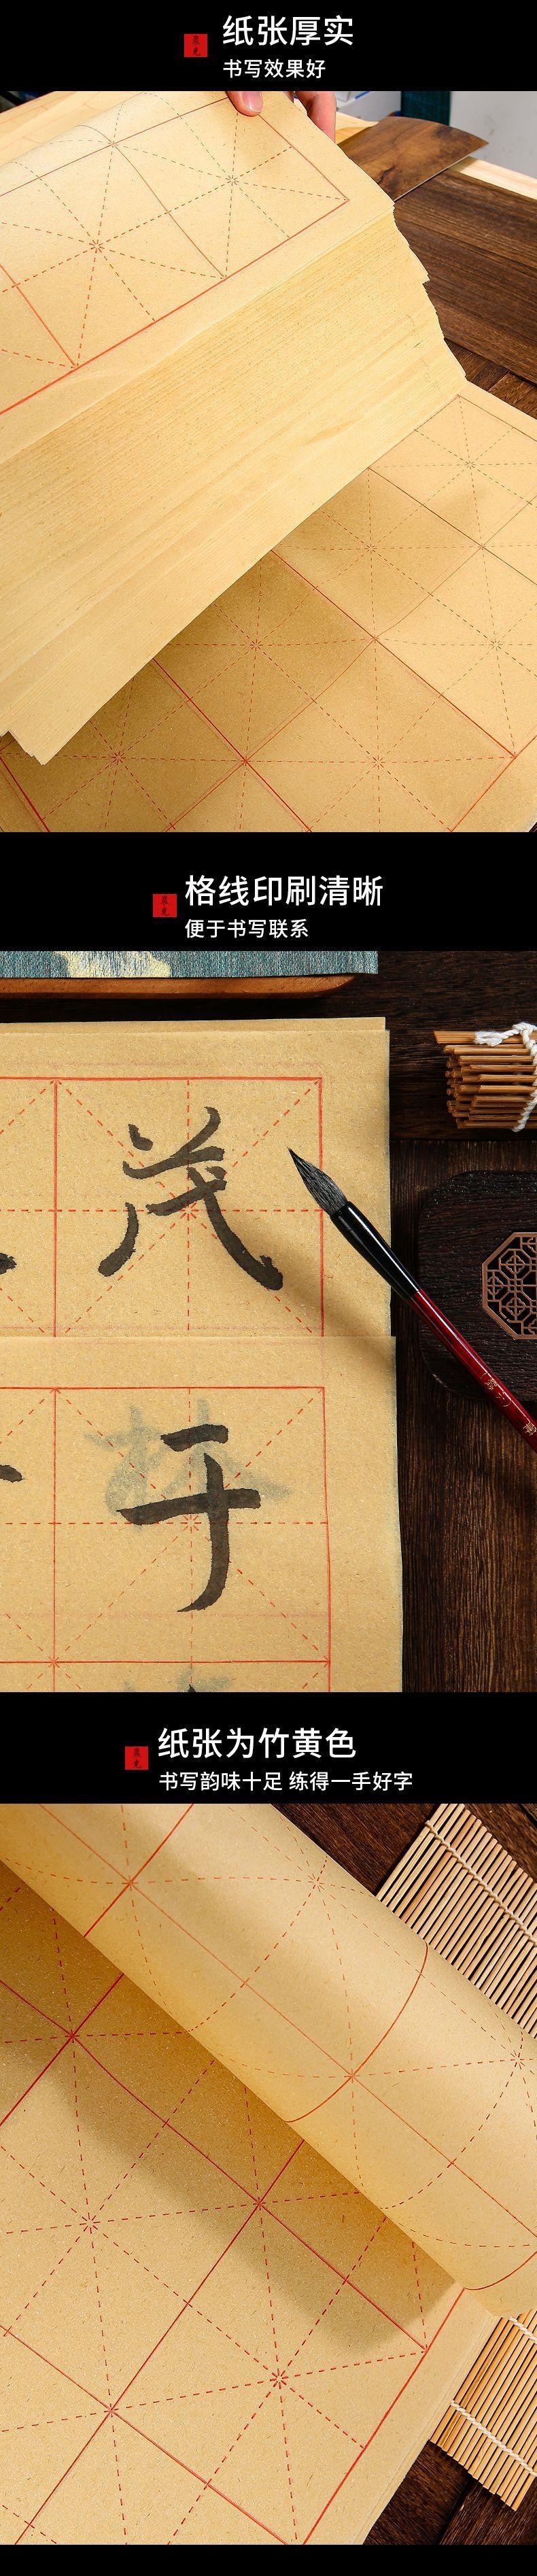 纸张厚实
书写效果好
格线印刷清晰
便于书写联系
茂
林
于
纸张为竹黄色
书写韵味十足 练得一手好字